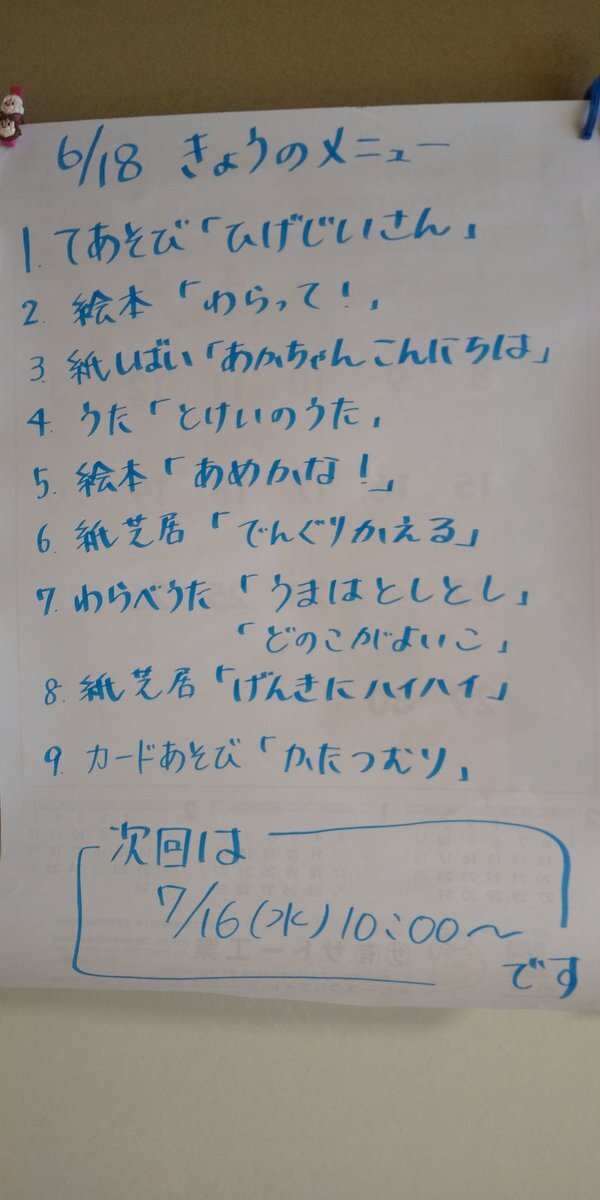 6/18 きょうのメニュー
1. てあそび「ひげじいさん」
2. 絵本「わらって!」
3. 紙しばい「あかちゃんこんにちは」
4. うた「とけいのうた」
5. 絵本「あめかな!」
6. 紙芝居「でんぐりかえる」
7. わらべうた「うまはとしとし」
「どのこがよいこ」
8. 紙芝居「げんきにハイハイ」
9. カードあそび「かたつむり」
次回は
7/16(水)10:00〜
です